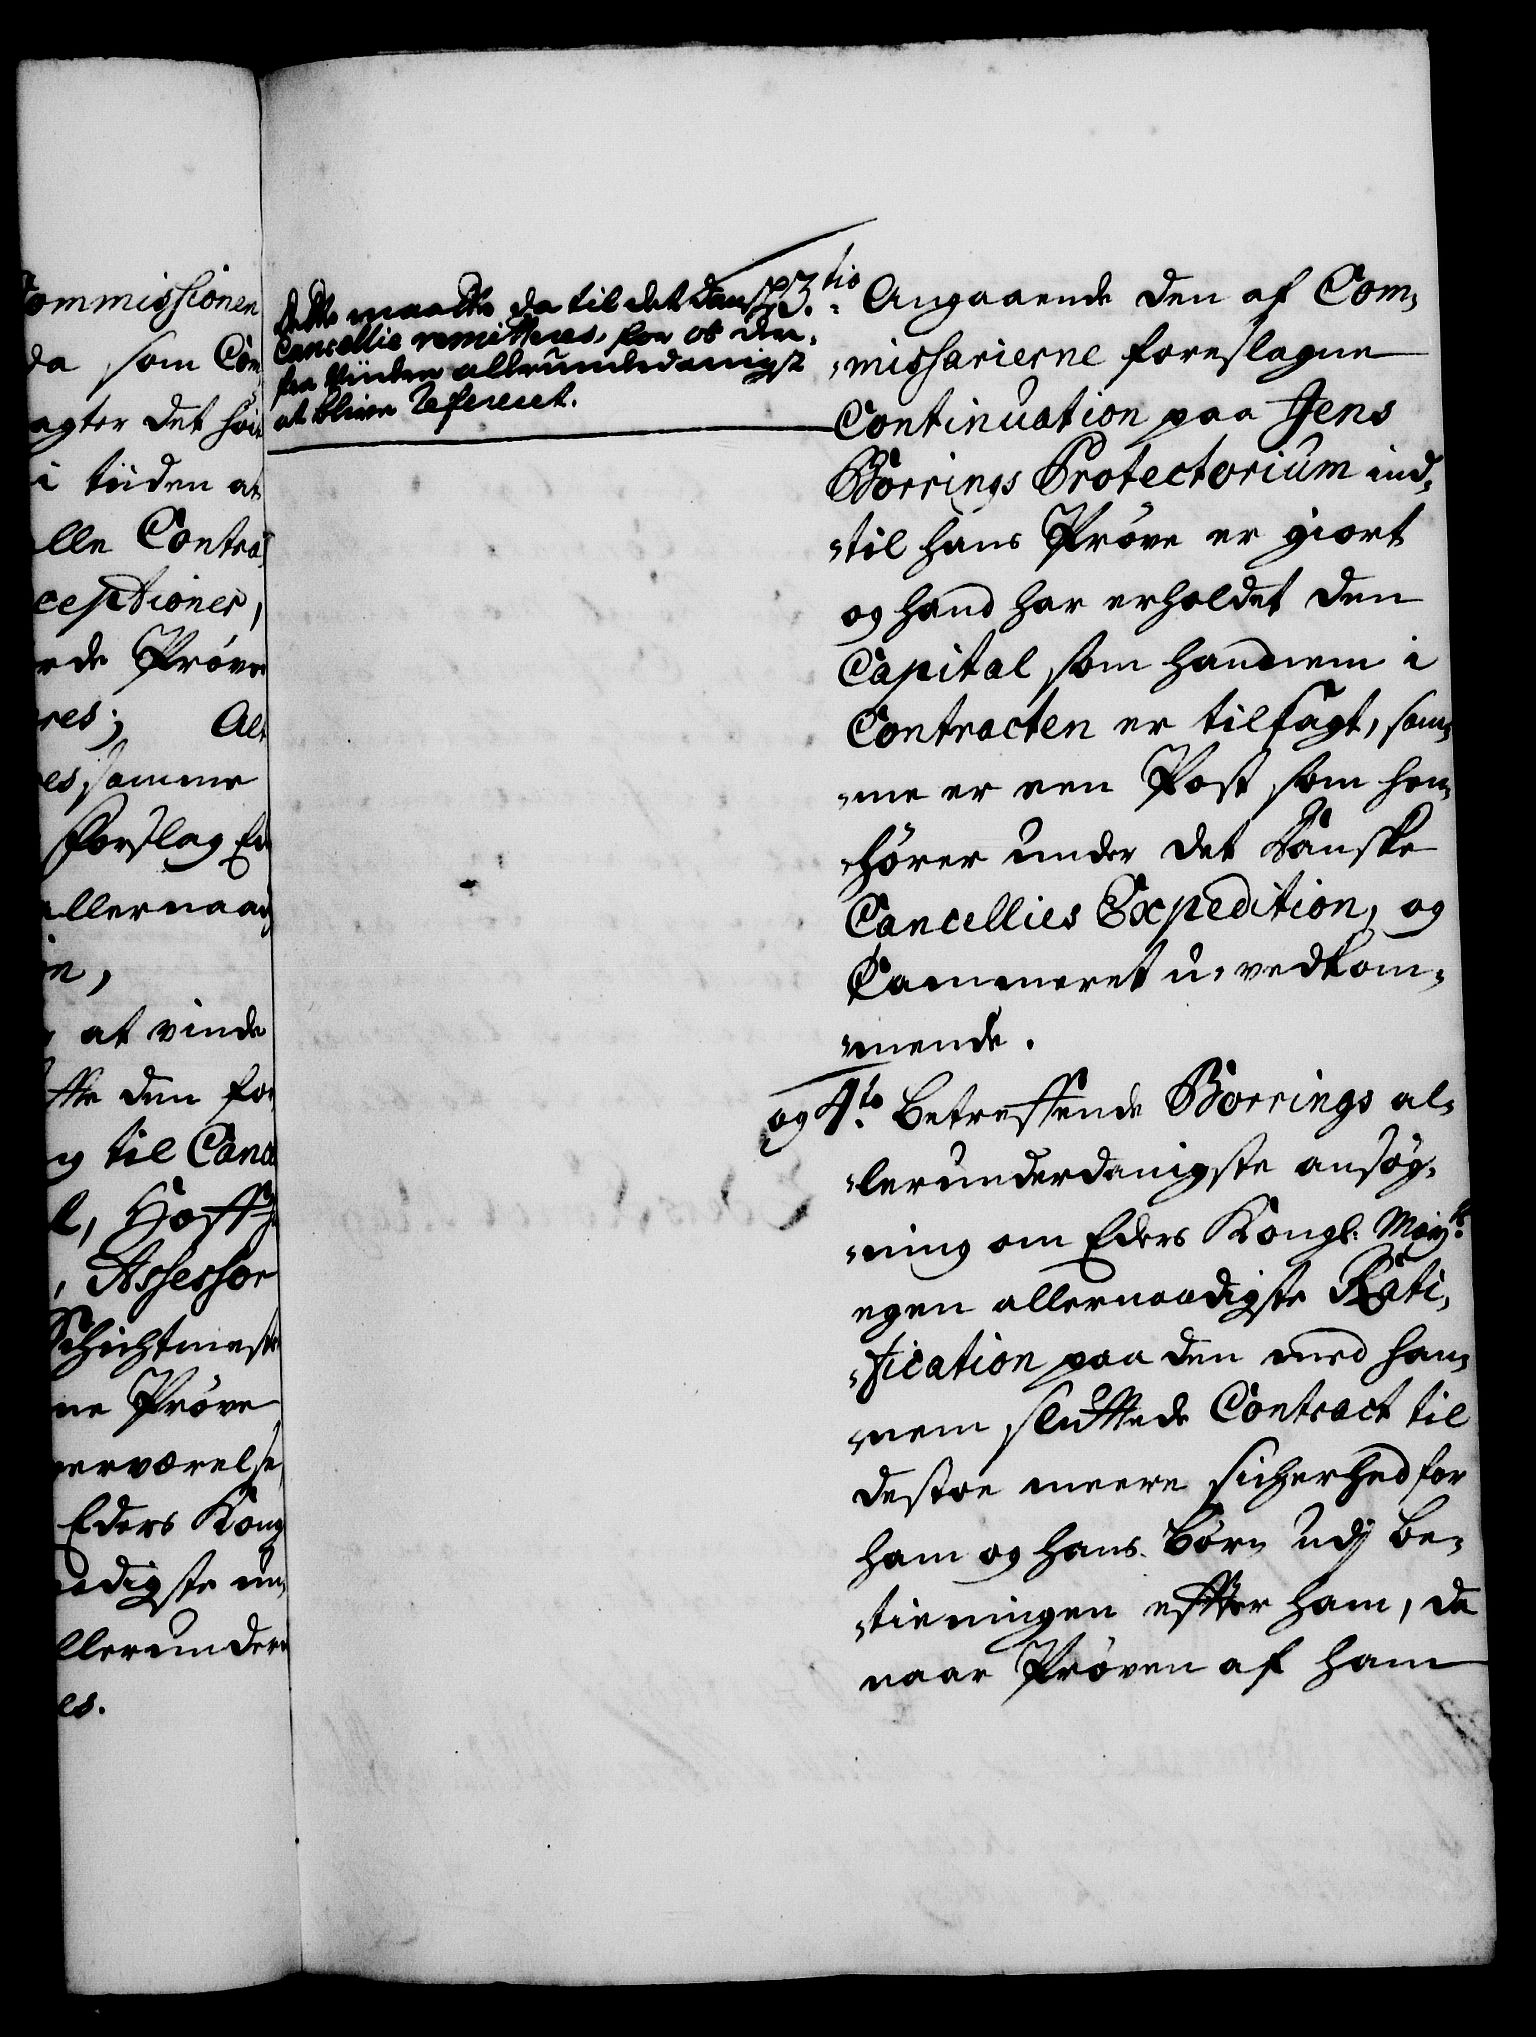 ommissionen
da som Com
agter det høi
i tiiden at
lle Contra
ceptioner,
rde Prøve
res; Alt
es samme
Forslag Ed
allernaad
in,
at vinde
ffte den for
g til Cance
l, Hoff
, Assessor
Schichtmest
ne Prøve
erværelse,
Eders Kong
aadigste un
llerunder
es.
Dette maatte da til det Danske
Cancellie remitteres, for at der
fra Vinden allerunderdanigst
at blive Refereret.
3.tio Angaaende den af Com,
,,missarierne foreslagne
Continuation paa Jens
Borrings Protectorium ind,
,,til hans Prøve er giort
og hand har erholdet den
Capital som hannem i
Contracten er tilsagt, sam,
,,me er een Post som hen,
,,hører under det Danske
Cancellies Expedition, og
Cammeret u,,vedkom,
,,mende.
og 4.to Betreffende Borrings al,
,,lerunderdanigste ansøg,
,,ning om Eders Kongl: May.ts
egen allernaadigste Rati,
,,fication paa den med han,
,,nem sluttede Contract til
destoe meere sicherhed for
ham og hans Børn udj be,
,,tieningen effter ham, da
naar Prøven af ham